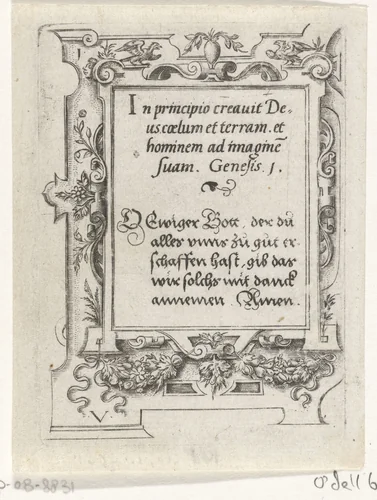 1
In principio creavit De-
us cœlum et terram. et
hominem ad imaginẽ
suam. Genesis. 1.
O Ewiger Gott, der du
alles vnns zů gůt er-
schaffen hast, gib das
wir solchs mit danck
annemen. Amen.
V